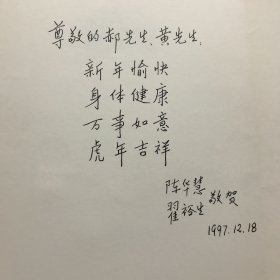 尊敬的郝先生、黄先生：
新年愉快
身体健康
万事如意
虎年吉祥
陈华慧
翟裕生 敬贺
1997.12.18